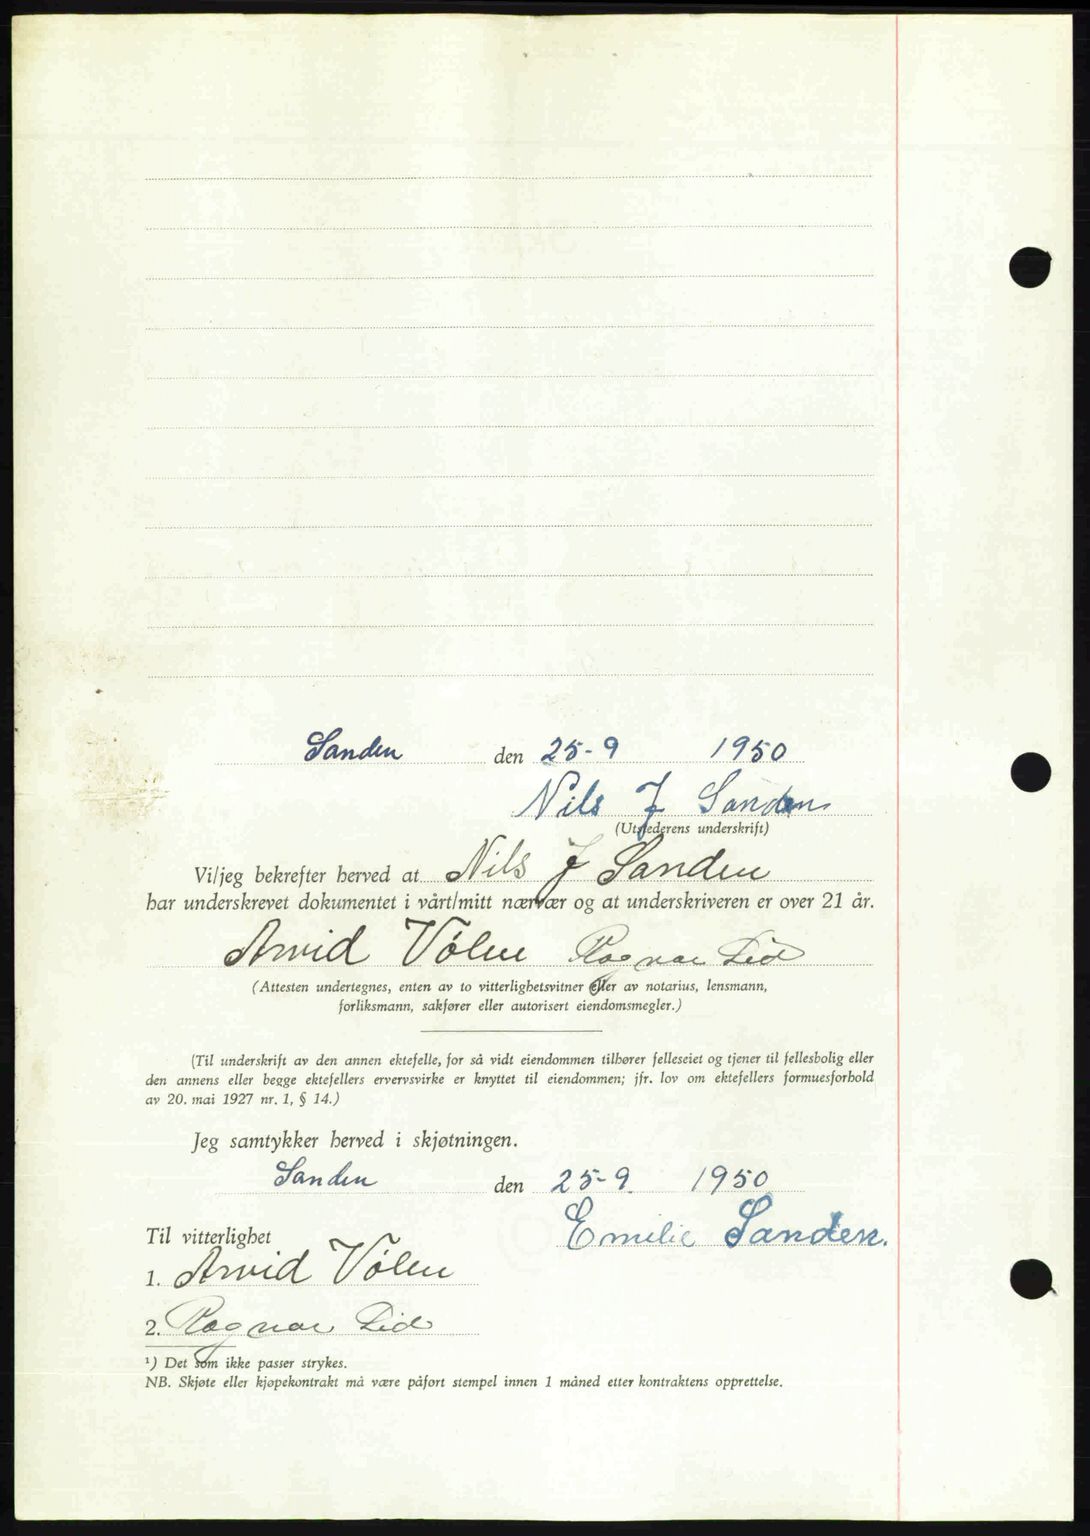 Sanden den 25-9 1950
Nils J Sanden
(Utstederens underskrift)
Vi/jeg bekrefter herved at Nils J Sanden
har underskrevet dokumentet i vårt/mitt nærvær og at underskriveren er over 21 år.
Arvid Vølen Ragnar Lid
(Attesten undertegnes, enten av to vitterlighetsvitner eller av notarius, lensmann,
forliksmann, sakfører eller autorisert eiendomsmegler.)
(Til underskrift av den annen ektefelle, for så vidt eiendommen tilhører felleseiet og tjener til fellesbolig eller
den annens eller begge ektefellers ervervsvirke er knyttet til eiendommen; jfr. lov om ektefellers formuesforhold
av 20. mai 1927 nr. 1, § 14.)
Jeg samtykker herved i skjøtningen.
Sanden den 25-9. 1950
Emilie Sanden.
Til vitterlighet
1. Arvid Vølen
2. Ragnar Lid
¹) Det som ikke passer strykes.
NB. Skjøte eller kjøpekontrakt må være påført stempel innen 1 måned etter kontraktens opprettelse.